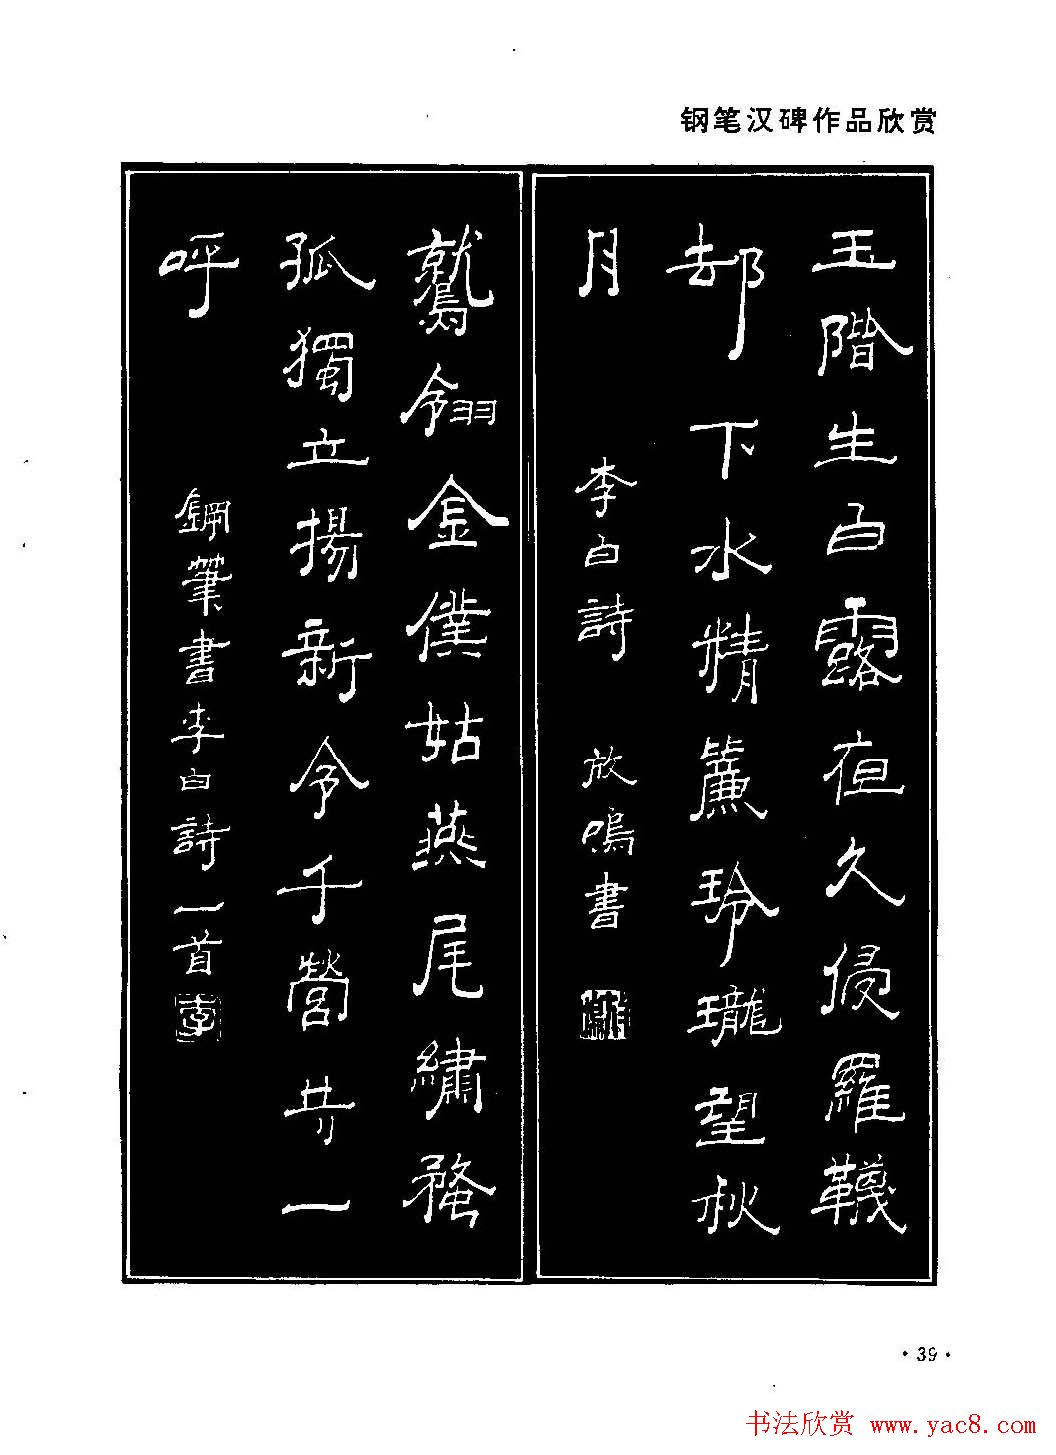 钢笔汉碑作品欣赏
玉階生白露夜久侵羅韈
却下水精簾玲瓏望秋
月
李白詩 放鳴書
鷲翎金僕姑燕尾繡蝥
孤獨立揚新令千營共一
呼
鋼筆書李白詩一首
·39·
书法欣赏 www.yac8.com